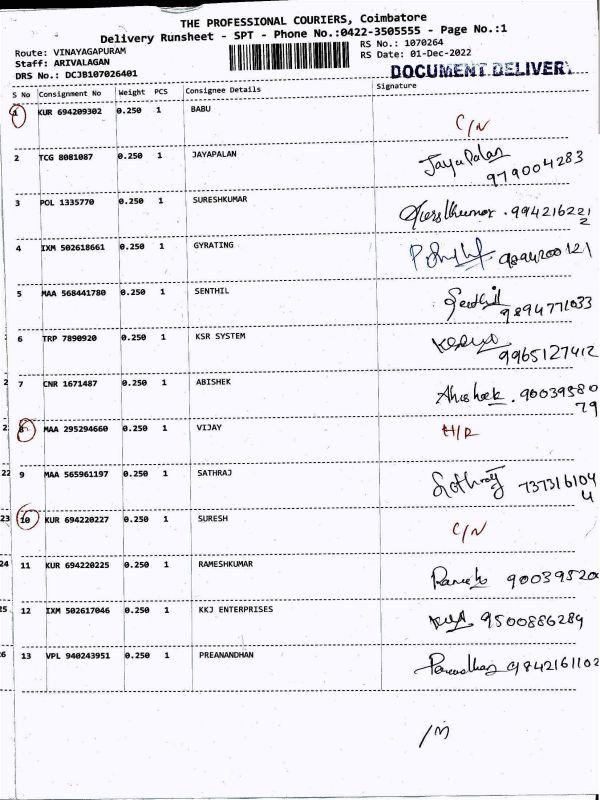 THE PROFESSIONAL COURIERS, Coimbatore
Delivery Runsheet - SPT - Phone No.:0422-3505555 - Page No.:1
Route: VINAYAGAPURAM
RS No.: 1070264
Staff: ARIVALAGAN
RS Date: 01-Dec-2022
DRS No.: DCJB107026401
DOCUMENT DELIVERY
S No Consignment No Weight PCS Consignee Details Signature
1 KUR 694209302 0.250 1 BABU
C/N
2 TCG 8081087 0.250 1 JAYAPALAN Jayapalan
979004283
3 POL 1335770 0.250 1 SURESHKUMAR
Sureshkumar . 994216221
2
4 IXM 502618661 0.250 1 GYRATING 9894200121
5 MAA 568441780 0.250 1 SENTHIL Senthil
9894771033
6 TRP 7890920 0.250 1 KSR SYSTEM
9965127412
7 CNR 1671487 0.250 1 ABISHEK
Abishek . 90039580
79
8 MAA 295294660 0.250 1 VIJAY
22 9 MAA 565961197 0.250 1 SATHRAJ
Sathraj 737316104
4
23 10 KUR 694220227 0.250 1 SURESH
C/N
24 11 KUR 694220225 0.250 1 RAMESHKUMAR
Ramesh 90039520
25 12 IXM 502617046 0.250 1 KKJ ENTERPRISES
9500886284
26 13 VPL 940243951 0.250 1 PREANANDHAN
9842161102